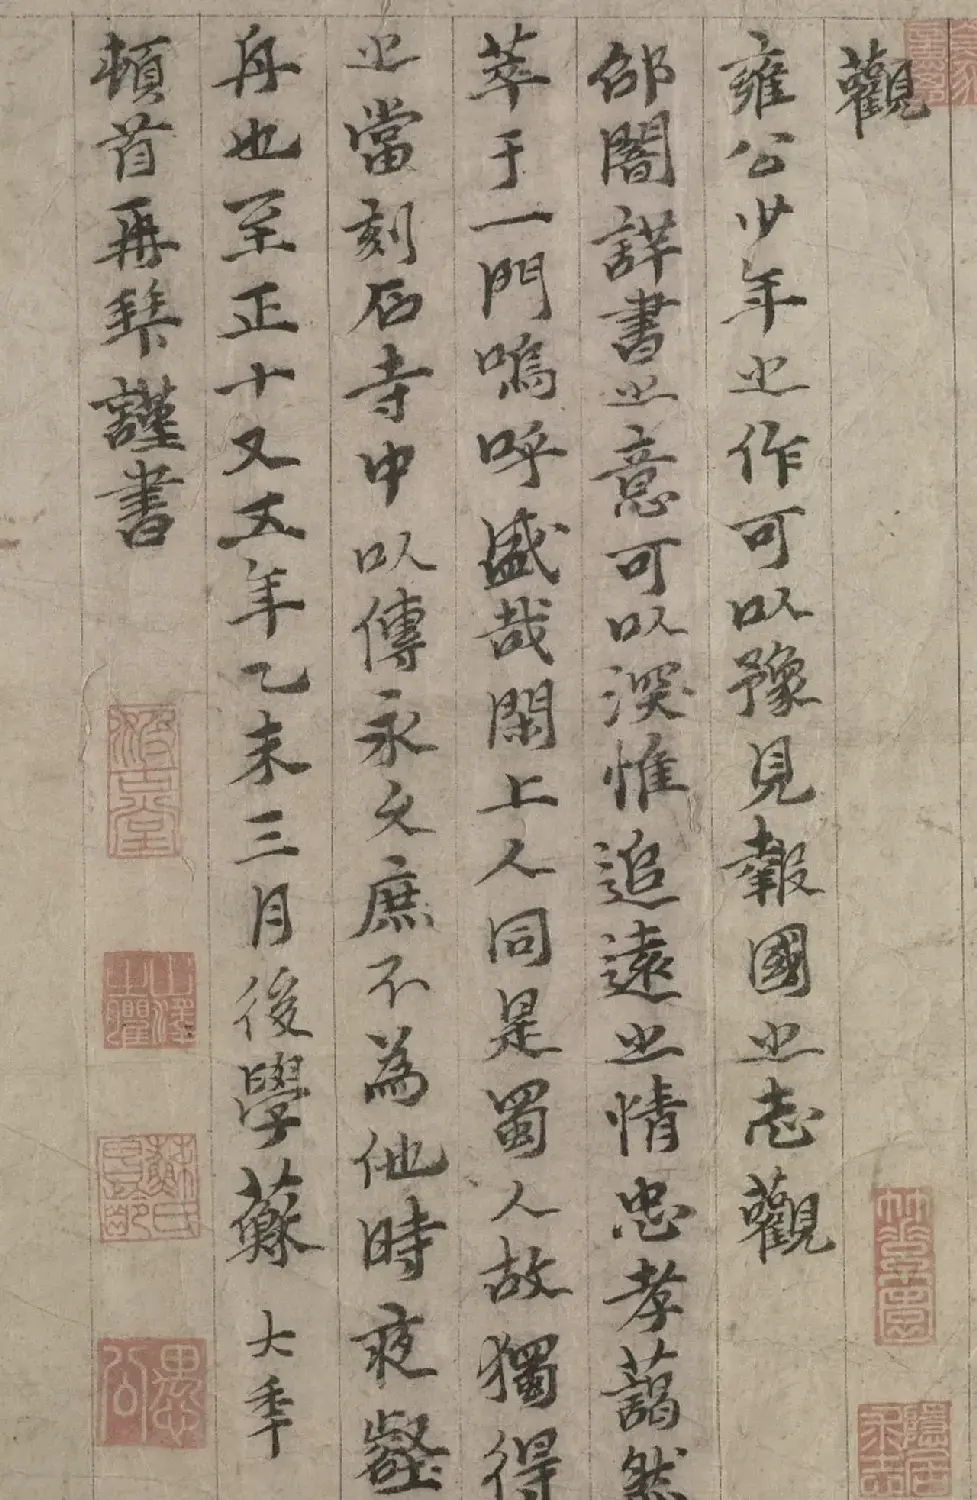 觀
雍公少年之作可以豫見報國之志觀
邵閣詳書之意可以深惟追遠之情忠孝藹然
萃于一門嗚呼盛哉閑上人同是蜀人故獨得
之當刻石寺中以傳永久庶不為他時夜壑
舟也至正十又五年乙未三月後學蘇大年
頓首再拜謹書
蘇氏昌齡